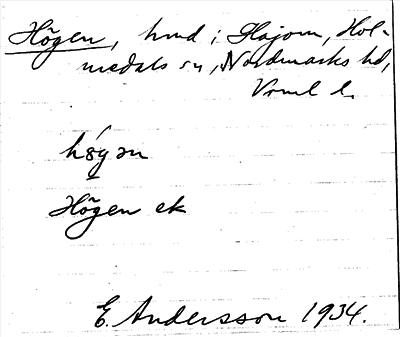 Högen, hmd i Häjom, Hol-
medals sn, Nordmarks hd,
Vrml l.
högən
Högen ek
E. Andersson 1934.